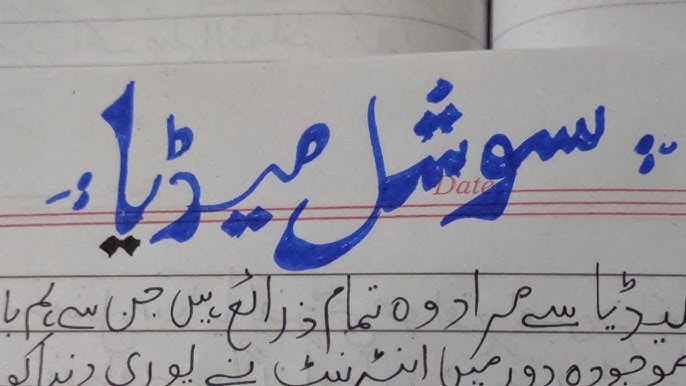 سوشل میڈیا
Date
میڈیا سے مراد وہ تمام ذرائع ہیں جن سے ہم با
موجودہ دور میں انٹرنیٹ نے پوری دنیا کو